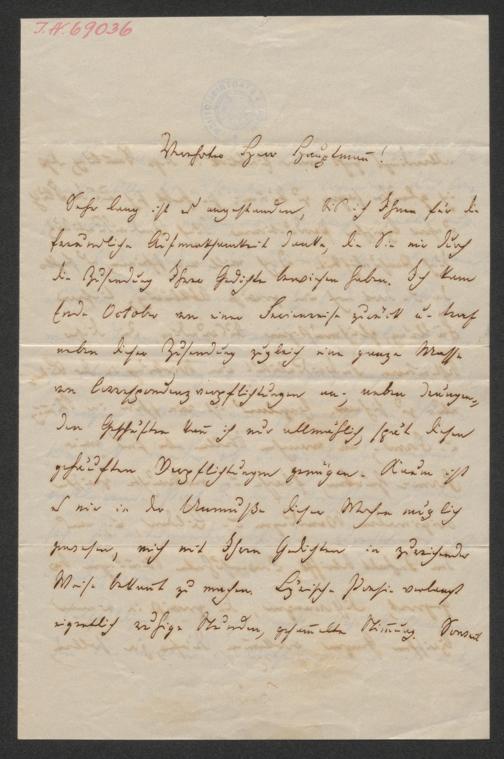 J.N. 69036
Verehrter Herr Hauptmann!
Sehr lang ist es angestanden, bis ich Ihnen für die
freundliche Aufmerksamkeit danke, die Sie mir durch
die Zusendung Ihrer Gedichte bewiesen haben. Ich kam
Ende October von einer Ferienreise zurück u. traf
neben dieser Zusendung zugleich eine ganze Masse
von Correspondenzverpflichtungen an; neben dringen-
den Geschäften kann ich nur allmählich, spät diesen
gehäuften Verpflichtungen genügen. Kaum ist
es mir in der Unmuße dieser Wochen möglich
gewesen, mich mit Ihren Gedichten in zureichender
Weise bekannt zu machen. Lyrische Poesie verlangt
eigentlich ruhige Stunden, gesammelte Stimmung. Soweit